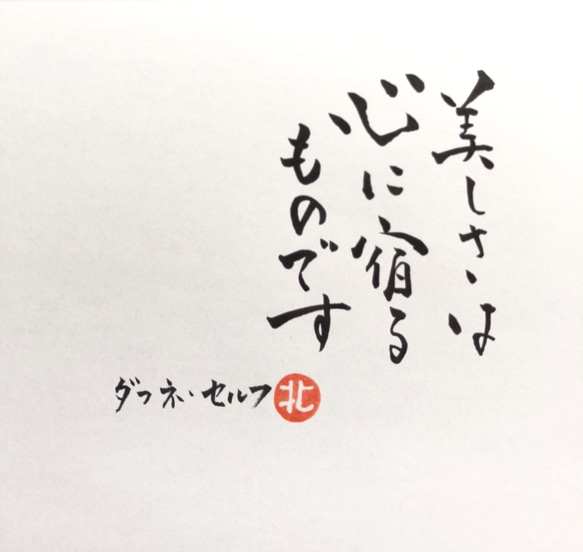 美しさは
心に宿る
ものです
ダフネ・セルフ
北